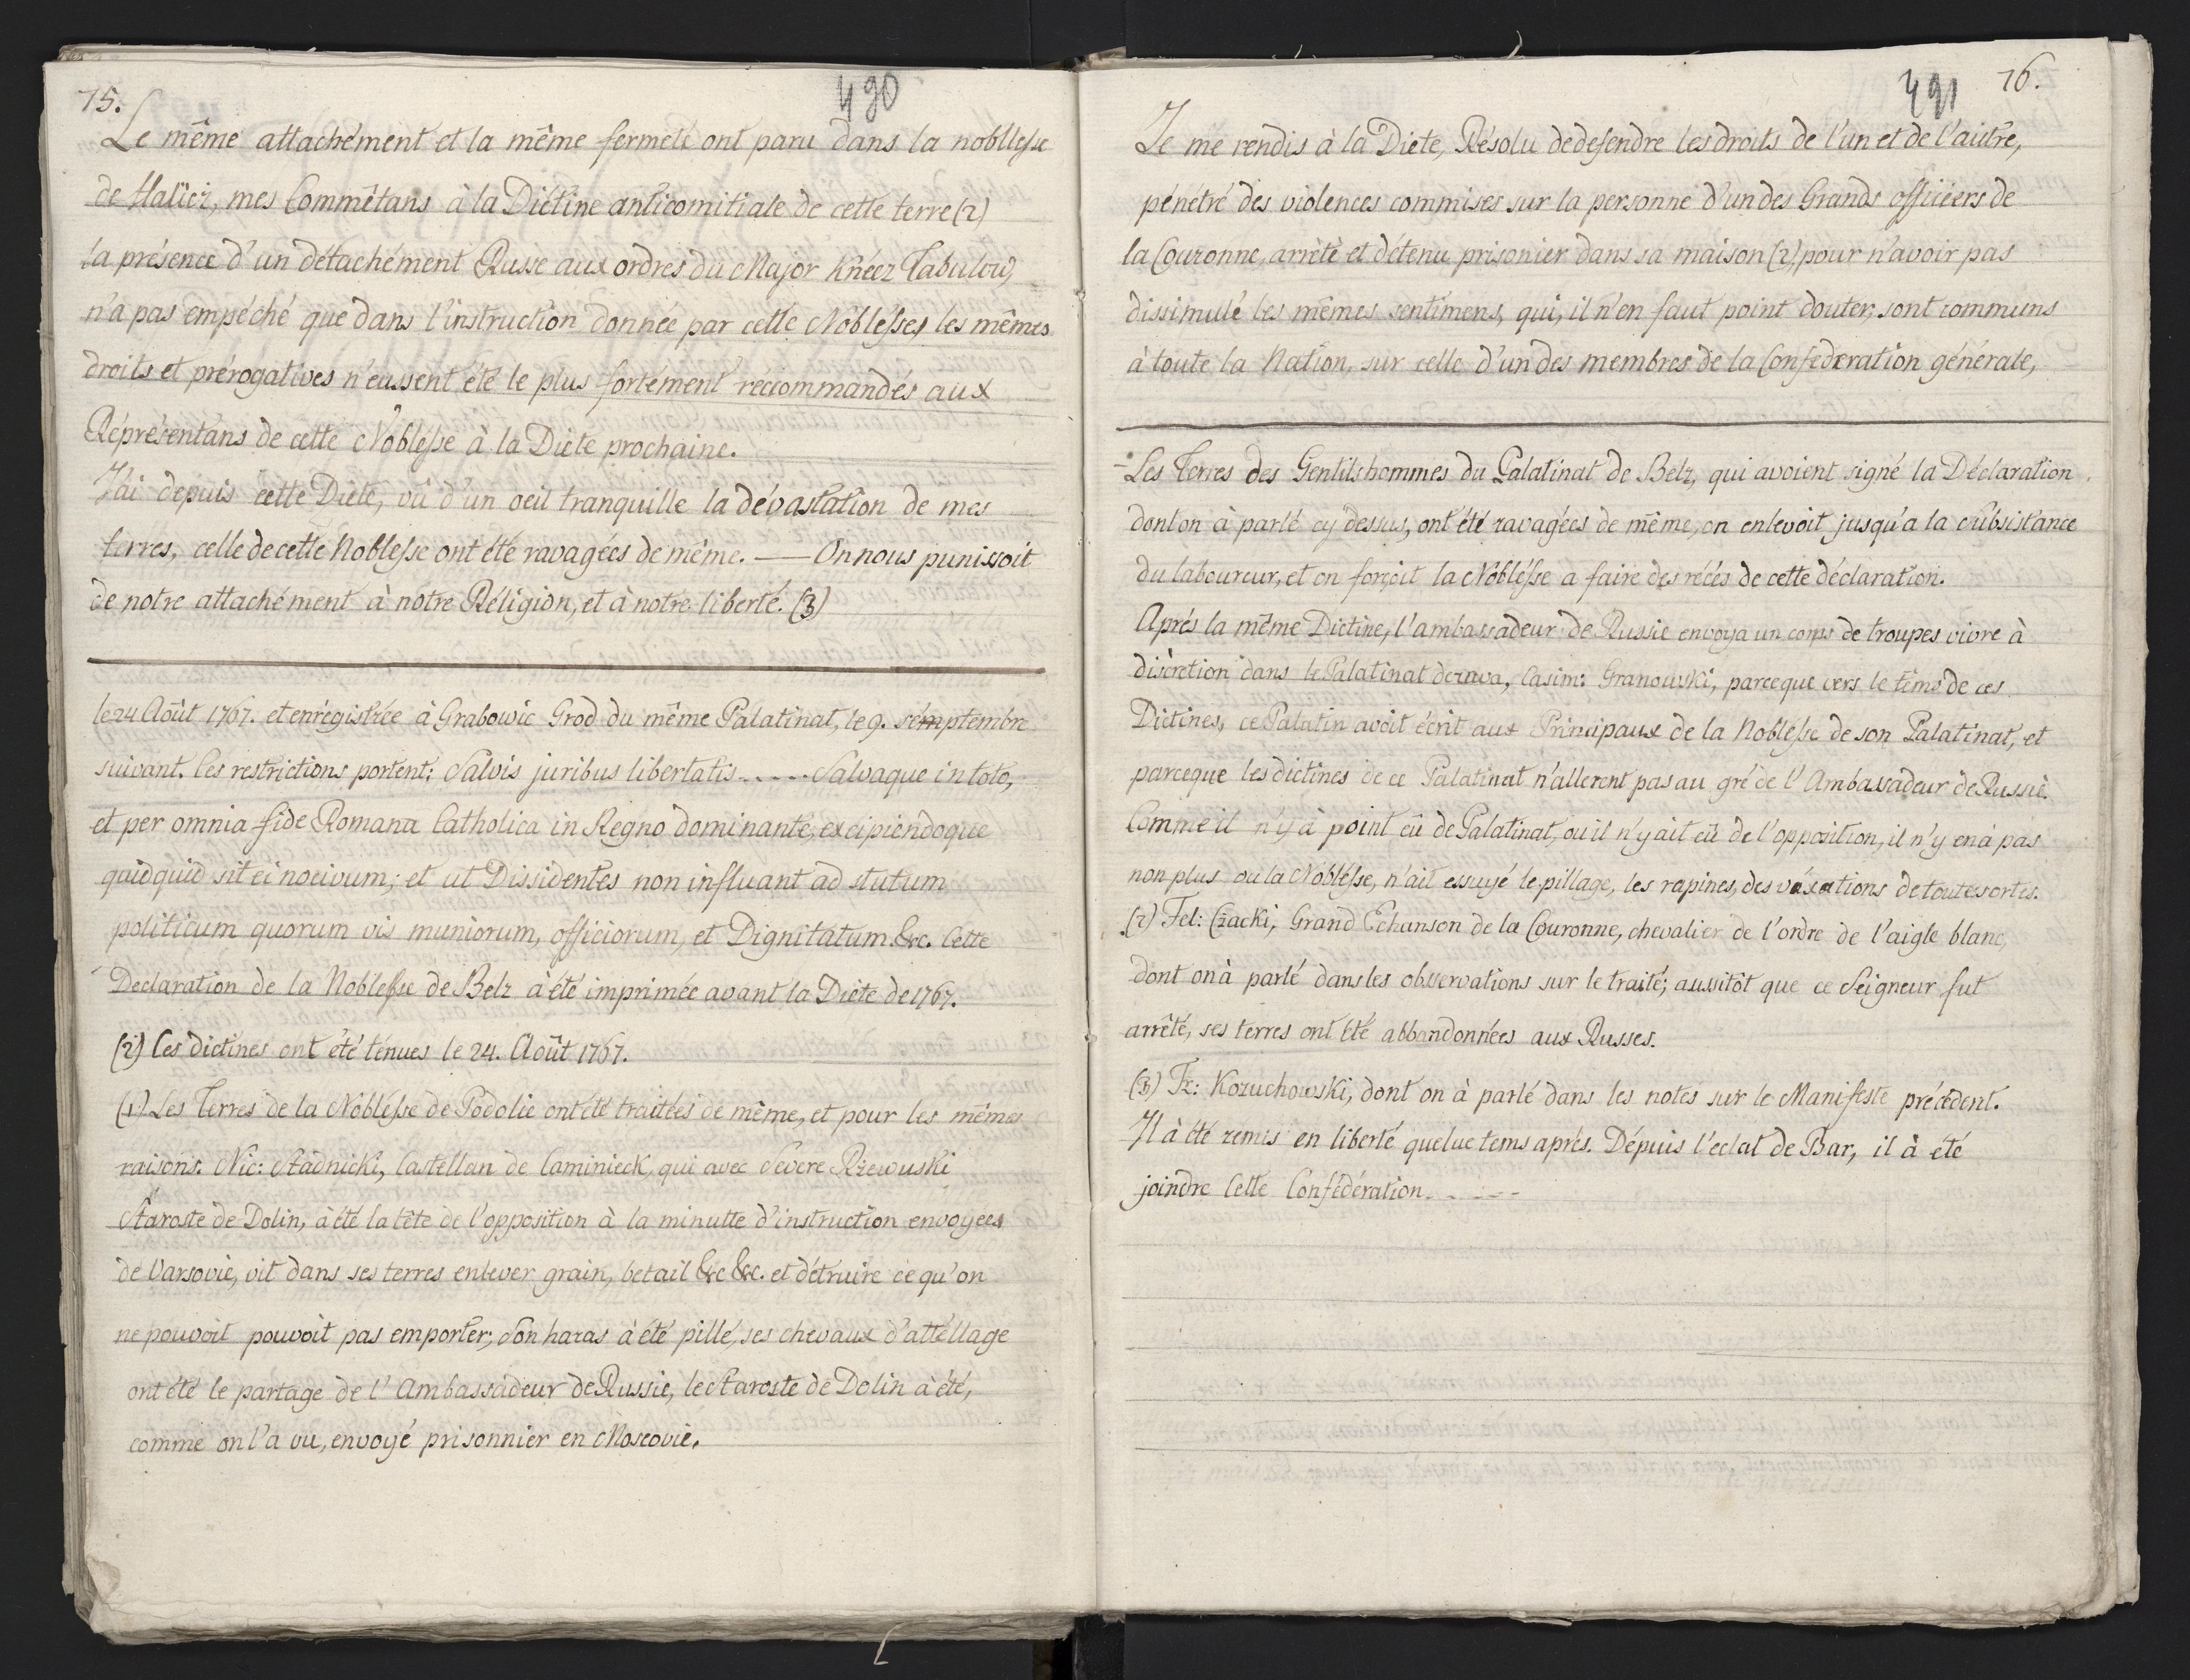 75.
490
Le même attachément et la même fermeté ont paru dans la nobllesse
de Halicz, mes Commêtans à la Diétine anticomitiale de cette terre (2)
la présence d'un détachément Russe aux ordres du Major Knéez
n'a pas empéché que dans l'instruction donnée par cette Noblesse, les mêmes
droits et prérogatives n'eussent été le plus fortément réccommandés aux
Réprésentans de cette Noblesse à la Diéte prochaine.
J'ai depuis cette Diéte, vû d'un oeil tranquille la dévastation de mes
terres, celle de cette Noblesse ont été ravagées de même. — On nous punissoit
de notre attachément à notre Réligion, et à notre liberté. (3)
le 24 Août 1767. et enrégistrée à Grabowic Grod du même Palatinat, le 9. septembre
suivant. Ces restrictions portent: Salvis juribus libertatis ..... Salvaque in toto,
et per omnia fide Romana Catholica in Regno dominante, excipiendoque
quidquid sit ei nocivum; et ut Dissidentes non influant ad statum
politicum quorum vis muniorum, officiorum, et Dignitatum &c. Cette
Declaration de la Noblesse de Belz à été imprimée avant la Diéte de 1767.
(2) Ces dictines ont été ténues le 24. Août 1767.
(1) Les Terres de la Noblesse de Podolie ont été traitées de même, et pour les mêmes
raisons. Nic: Stadnicki, Castellan de Caminieck, qui avec Severe Rzewuski
Staroste de Dolin, à été la tête de l'opposition à la minutte d'instruction envoyees
de Varsovie, vit dans ses terres enlever grain, betail &c &c. et détruire ce qu'on
ne pouvoit pouvoit pas emporter; Son haras à été pillé, ses chevaux d'attéllage
ont été le partage de l'Ambassadeur de Russie, le Staroste de Dolin à été,
comme on l'a vu, envoyé prisonnier en Moscovie.
491
76.
Je me rendis à la Diéte, Résolu de defendre les droits de l'un et de l'autre,
pénétré des violences commises sur la personne d'un des Grands officiers de
la Couronne, arrèté et détenu prisonier dans sa maison (2) pour n'avoir pas
dissimulé les mêmes sentimens, qui, il n'en faut point douter, sont communs
à toute la Nation, sur celle d'un des membres de la Confederation générale,
Les Terres des Gentilshommes du Palatinat de Belz, qui avoient signé la Déclaration
dont on à parlé cy dessus, ont été ravagées de même, on enlevoit jusqu'a la subsistance
du laboureur, et on forçoit la Noblesse a faire des récés de cette déclaration.
Aprés la même Dictine, l'ambassadeur de Russie envoya un corps de troupes vivre à
discretion dans le Palatinat de rawa, Casim: Granowski, parceque vers le tems de ces
Dictines, ce Palatin avoit écrit aux Principaux de la Noblesse de son Palatinat, et
parceque les dictines de ce Palatinat n'allerent pas au gré de l'Ambassadeur de Russie.
Comme il n'y à point eû de Palatinat, ou il n'y ait eû de l'opposition, il n'y en à pas
non plus ou la Noblesse, n'ait essuyé le pillage, les rapines, des véxations de toute sortes.
(2) Fel: Czacki, Grand Echanson de la Couronne, chevalier de l'ordre de l'aigle blanc,
dont on à parlé dans les observations sur le traité; aussitôt que ce Seigneur fut
arrêté, ses terres ont été abbandonnées aux Russes.
(3) Fr: Kozuchowski, dont on à parlé dans les notes sur le Manifeste précédent.
Il à été remis en liberté quelue tems aprés. Dépuis l'eclat de Bar, il à été
joindre Cette Confédération .....